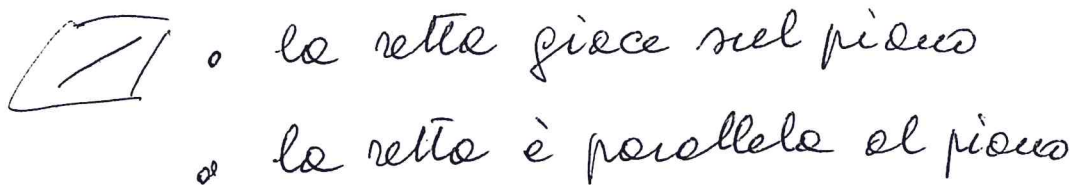 • la retta giace sul piano
• la retta è parallela al piano